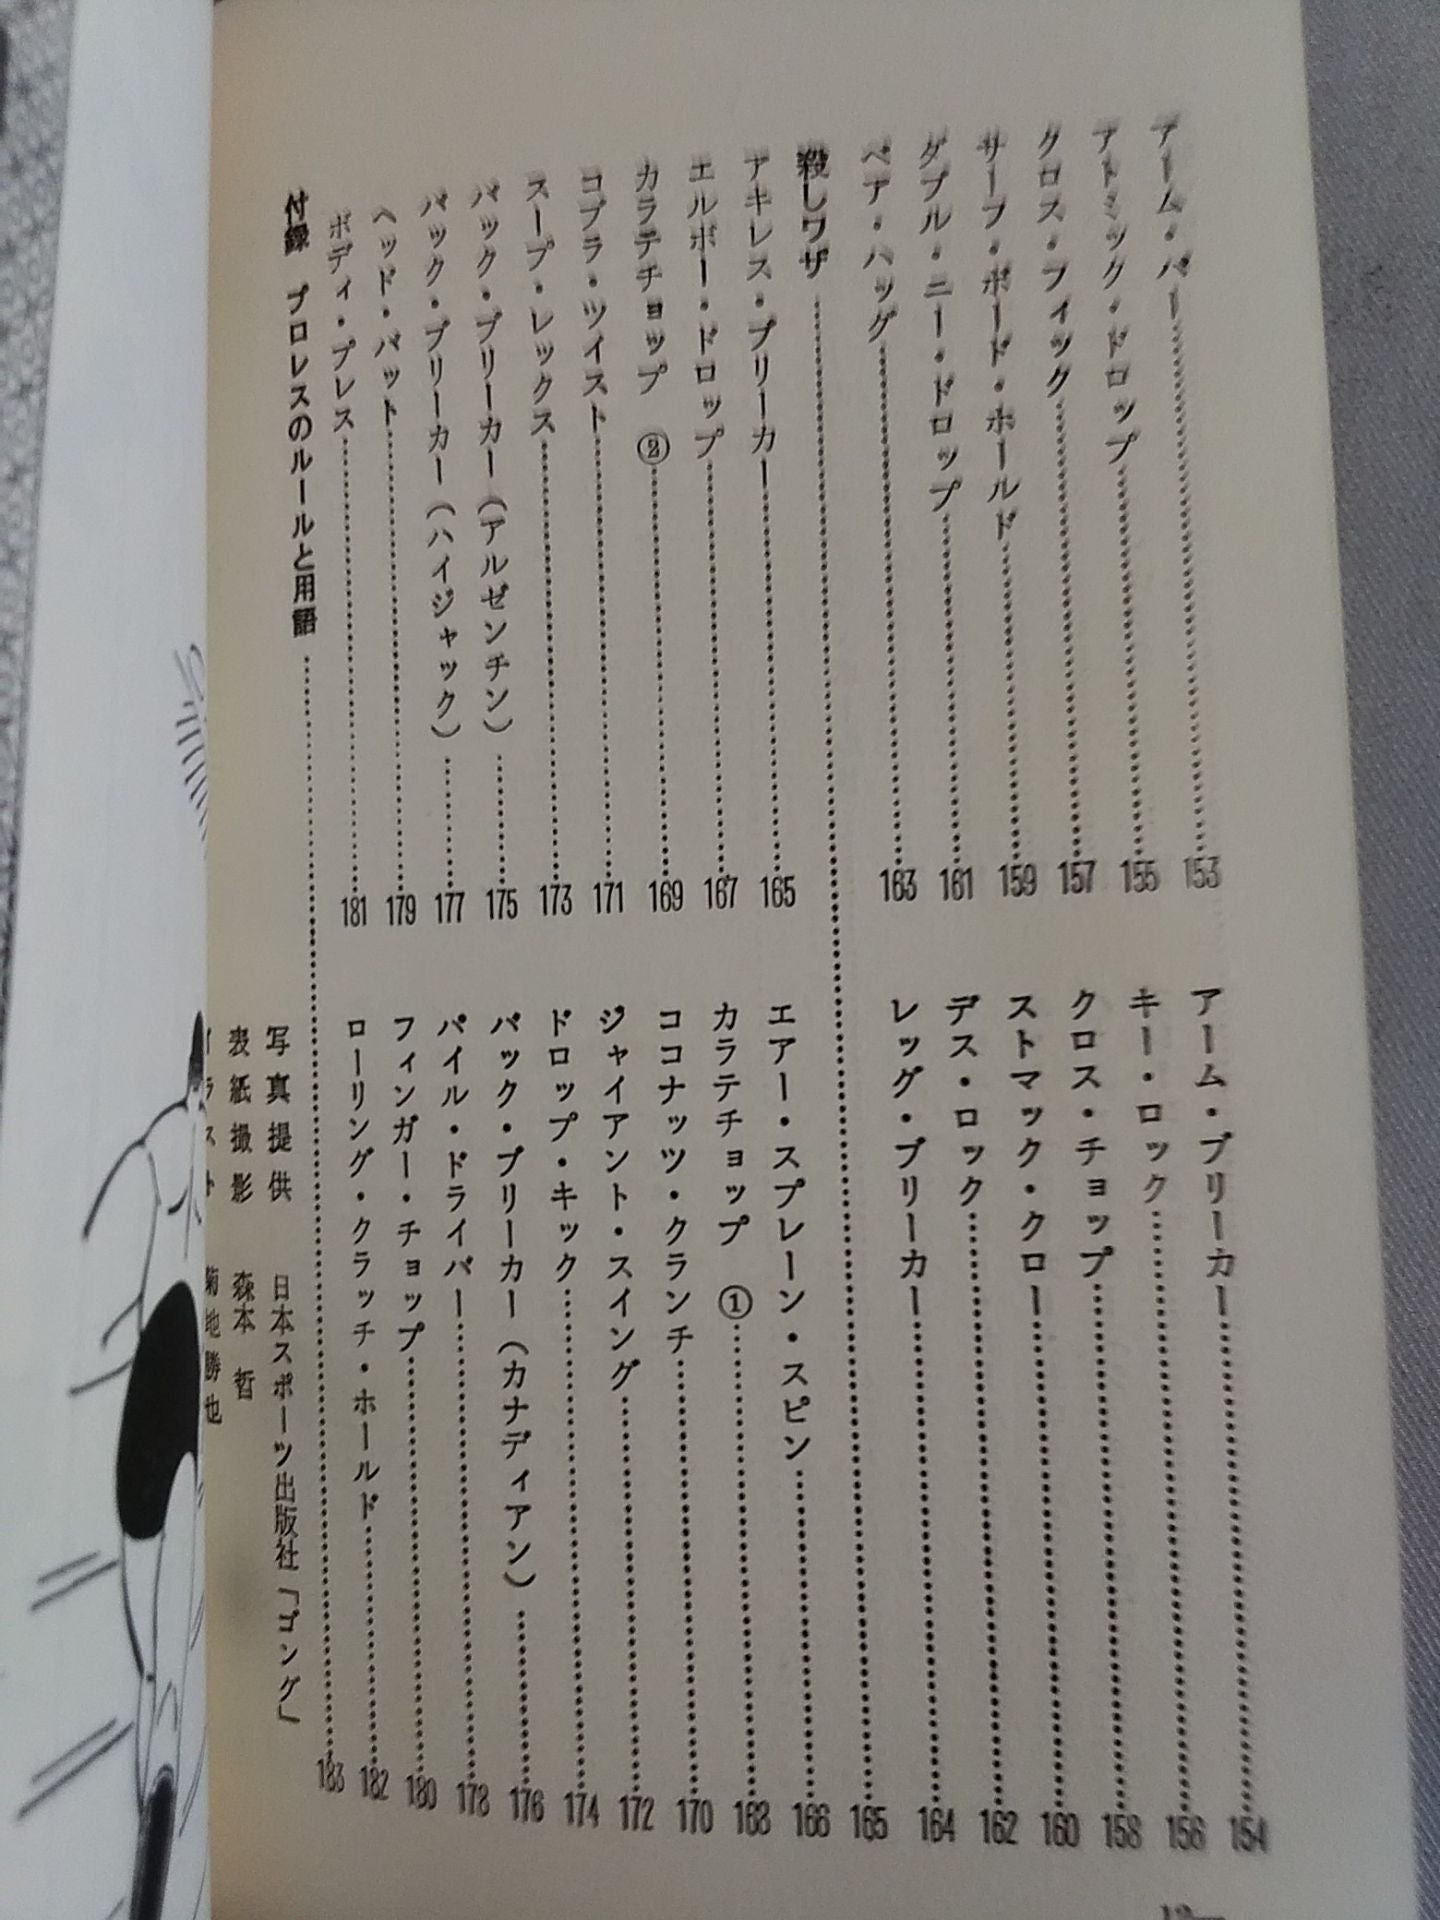 アーム・バー……153
アーム・ブリーカー……154
アトミック・ドロップ……155
キー・ロック……156
クロス・フィック……157
クロス・チョップ……158
サーフ・ボード・ホールド……159
ストマック・クロー……160
ダブル・ニー・ドロップ……161
デス・ロック……162
ベア・ハッグ……163
レッグ・ブリーカー……164
殺しワザ……165
アキレス・ブリーカー……165
エアー・スプレーン・スピン……166
エルボー・ドロップ……167
カラテチョップ ①……168
カラテチョップ ②……169
ココナッツ・クランチ……170
コブラ・ツイスト……171
ジャイアント・スイング……172
スープ・レックス……173
ドロップ・キック……174
バック・ブリーカー（アルゼンチン）……175
バック・ブリーカー（カナディアン）……176
バック・ブリーカー（ハイジャック）……177
パイル・ドライバー……178
ヘッド・バット……179
フィンガー・チョップ……180
ボディ・プレス……181
ローリング・クラッチ・ホールド……182
付録 プロレスのルールと用語……183
写真提供 日本スポーツ出版社「ゴング」
表紙撮影 森本 哲
イラスト 菊地勝也